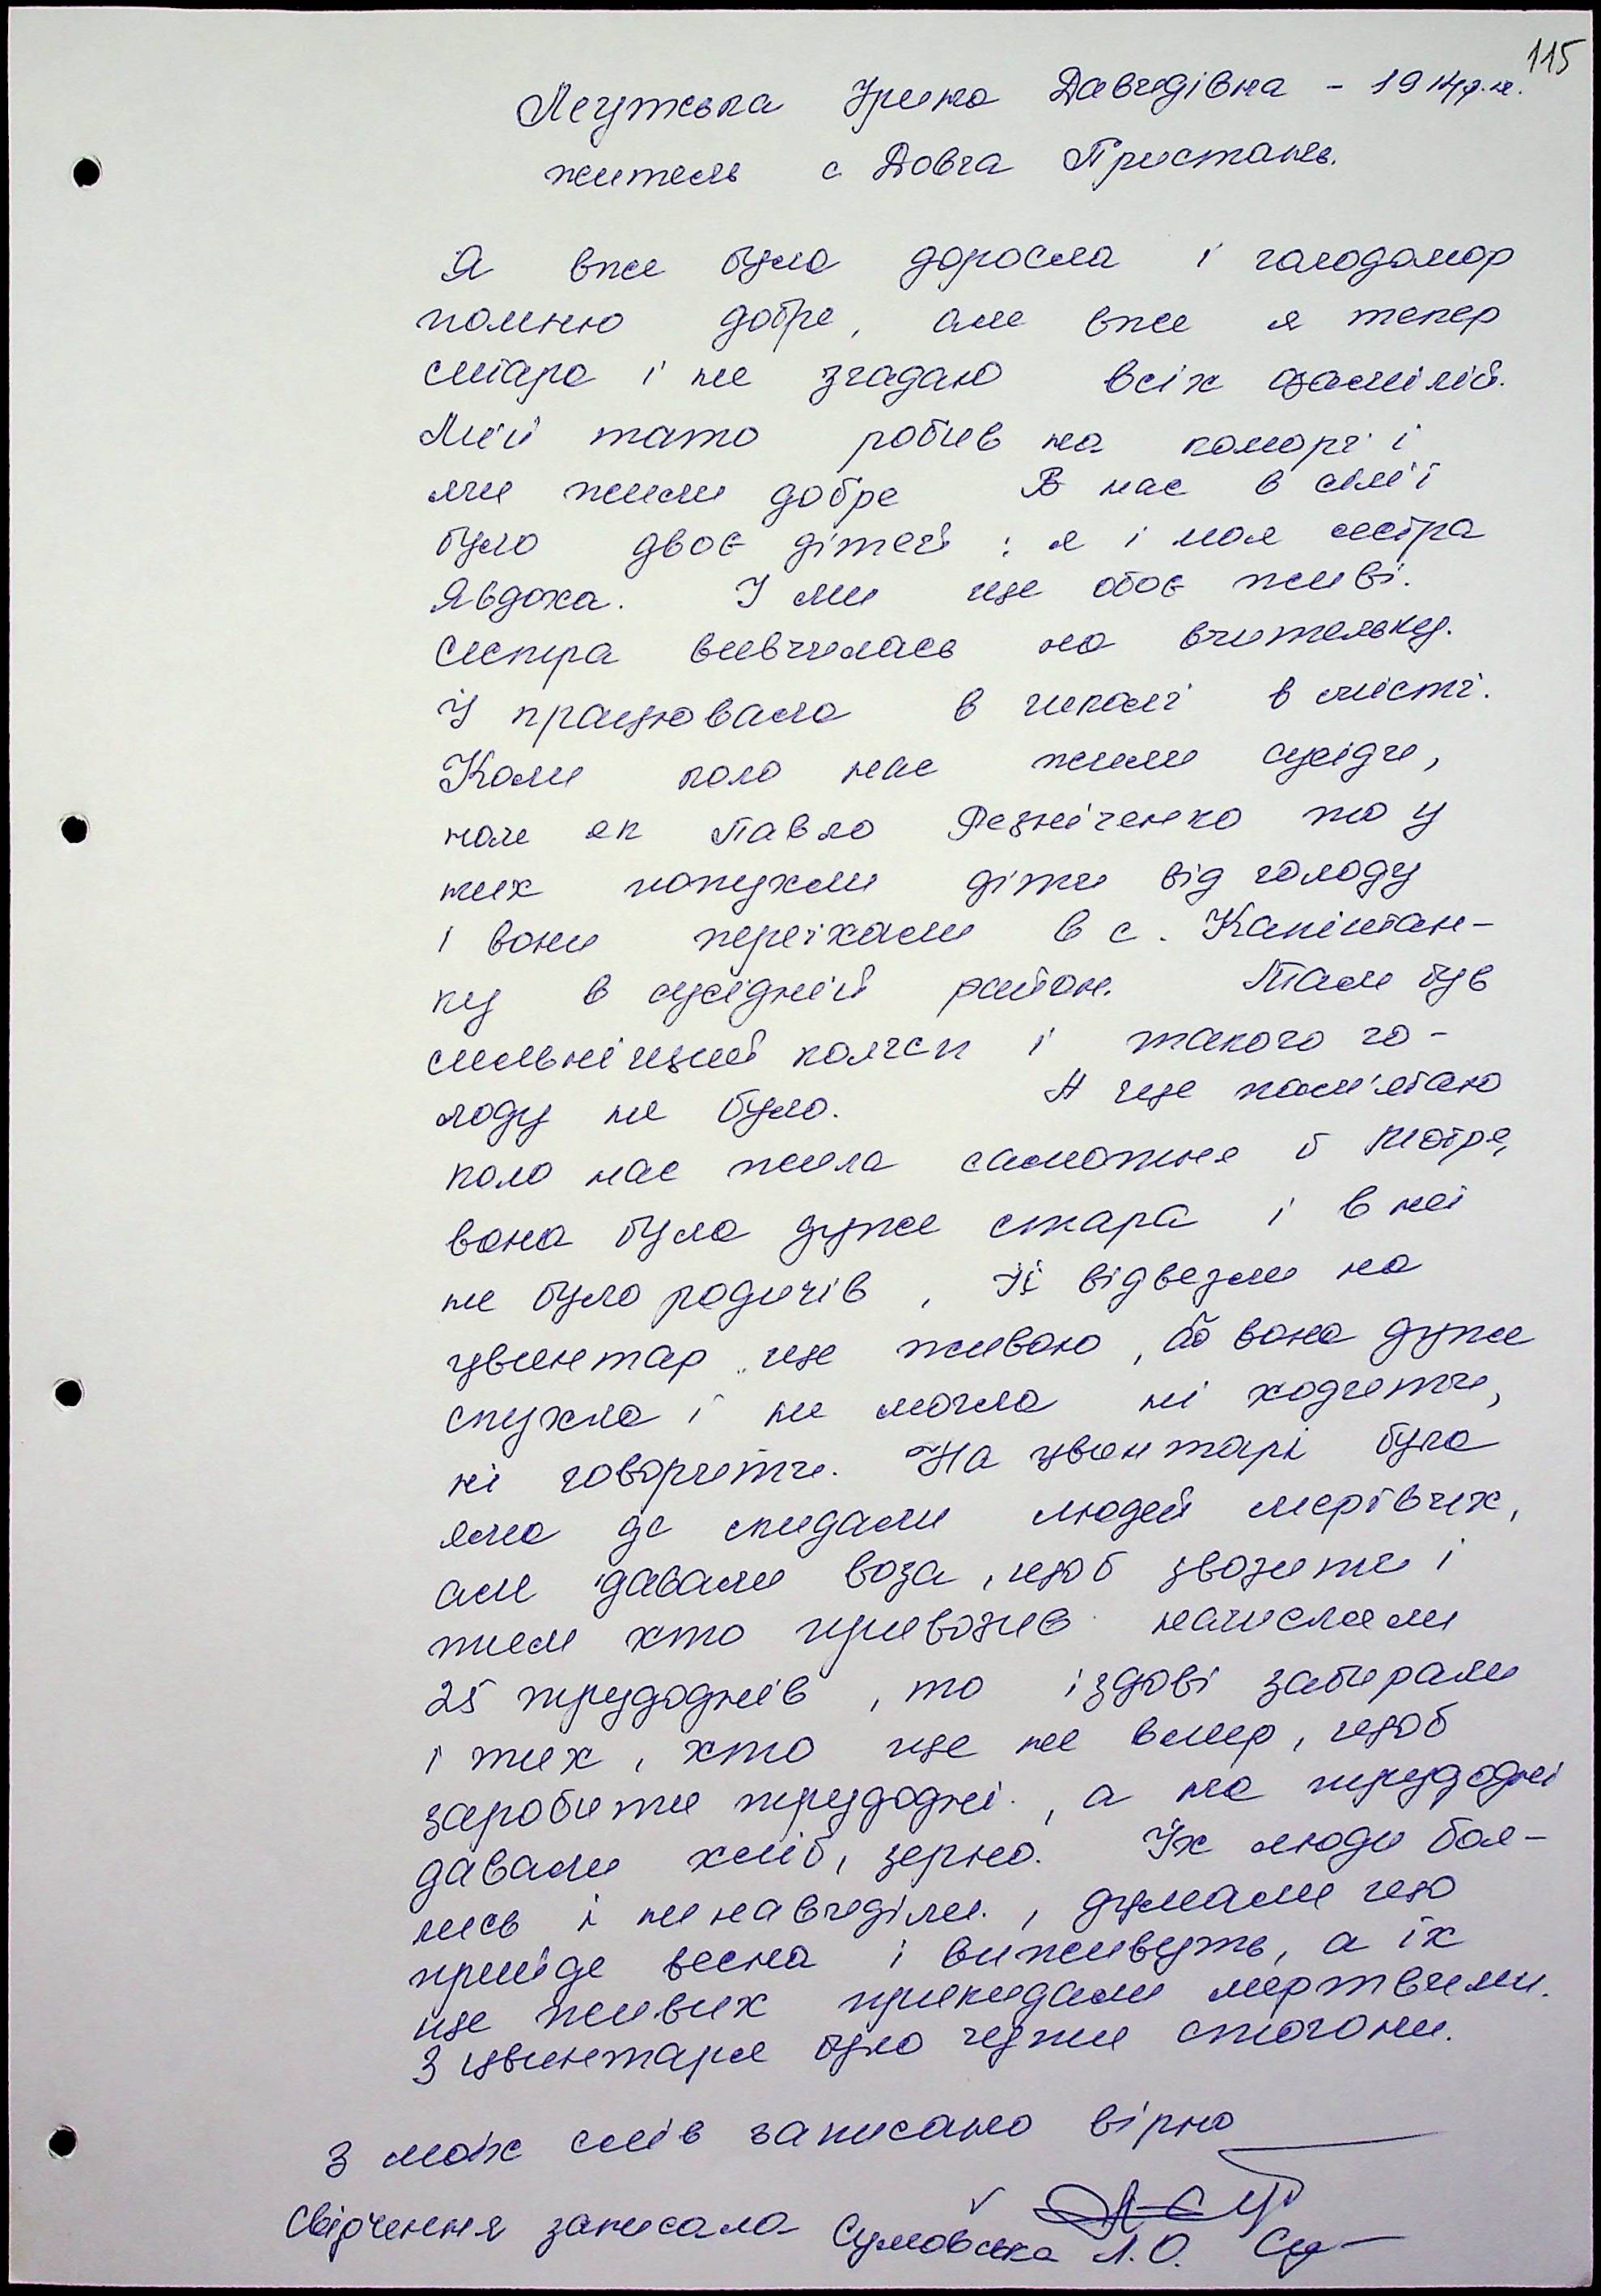 115
Ирина Давидівна - 1914 р.н.
житель с Довга Пристань.
Я вже була доросла і голодомор
помню добре, але вже я тепер
стара і не згадаю всіх фамілій.
Мій тато робив на коморі і
ми жили добре В нас в сім'ї
було двоє дітей : я і моя сестра
Явдоха. І ми ще обоє живі.
Сестра вивчилась на вчительку.
Й працювала в школі в місті.
Коли коло нас жили сусіди,
як Павло Резніченко то у
них попухли діти від голоду
і вони переїхали в с. Капітан-
ку в сусідній район. Там був
сильніший колгсп і такого го-
лоду не було. А ще пам'ятаю
коло нас жила самотня б Мотря,
вона була дуже стара і в неї
не було родичів, її відвезли на
цвинтар ще живою, бо вона дуже
спухла і не могла ні ходити,
ні говорити. На цвинтарі була
яма де скидали людей мертвих,
але давали воза, щоб звозити і
тим хто привозив начисляли
25 трудоднів, то їздові забирали
і тих, хто ще не вмер, щоб
заробити трудодні, а на трудодні
давали хліб, зерно. Їх люди боя-
лись і ненавиділи, думали що
прийде весна і виживуть, а їх
ще живих прикидали мертвими.
З цвинтаря було чутно стогони.
З моїх слів записано вірно
Свідчення записала Сумовська Л.О.